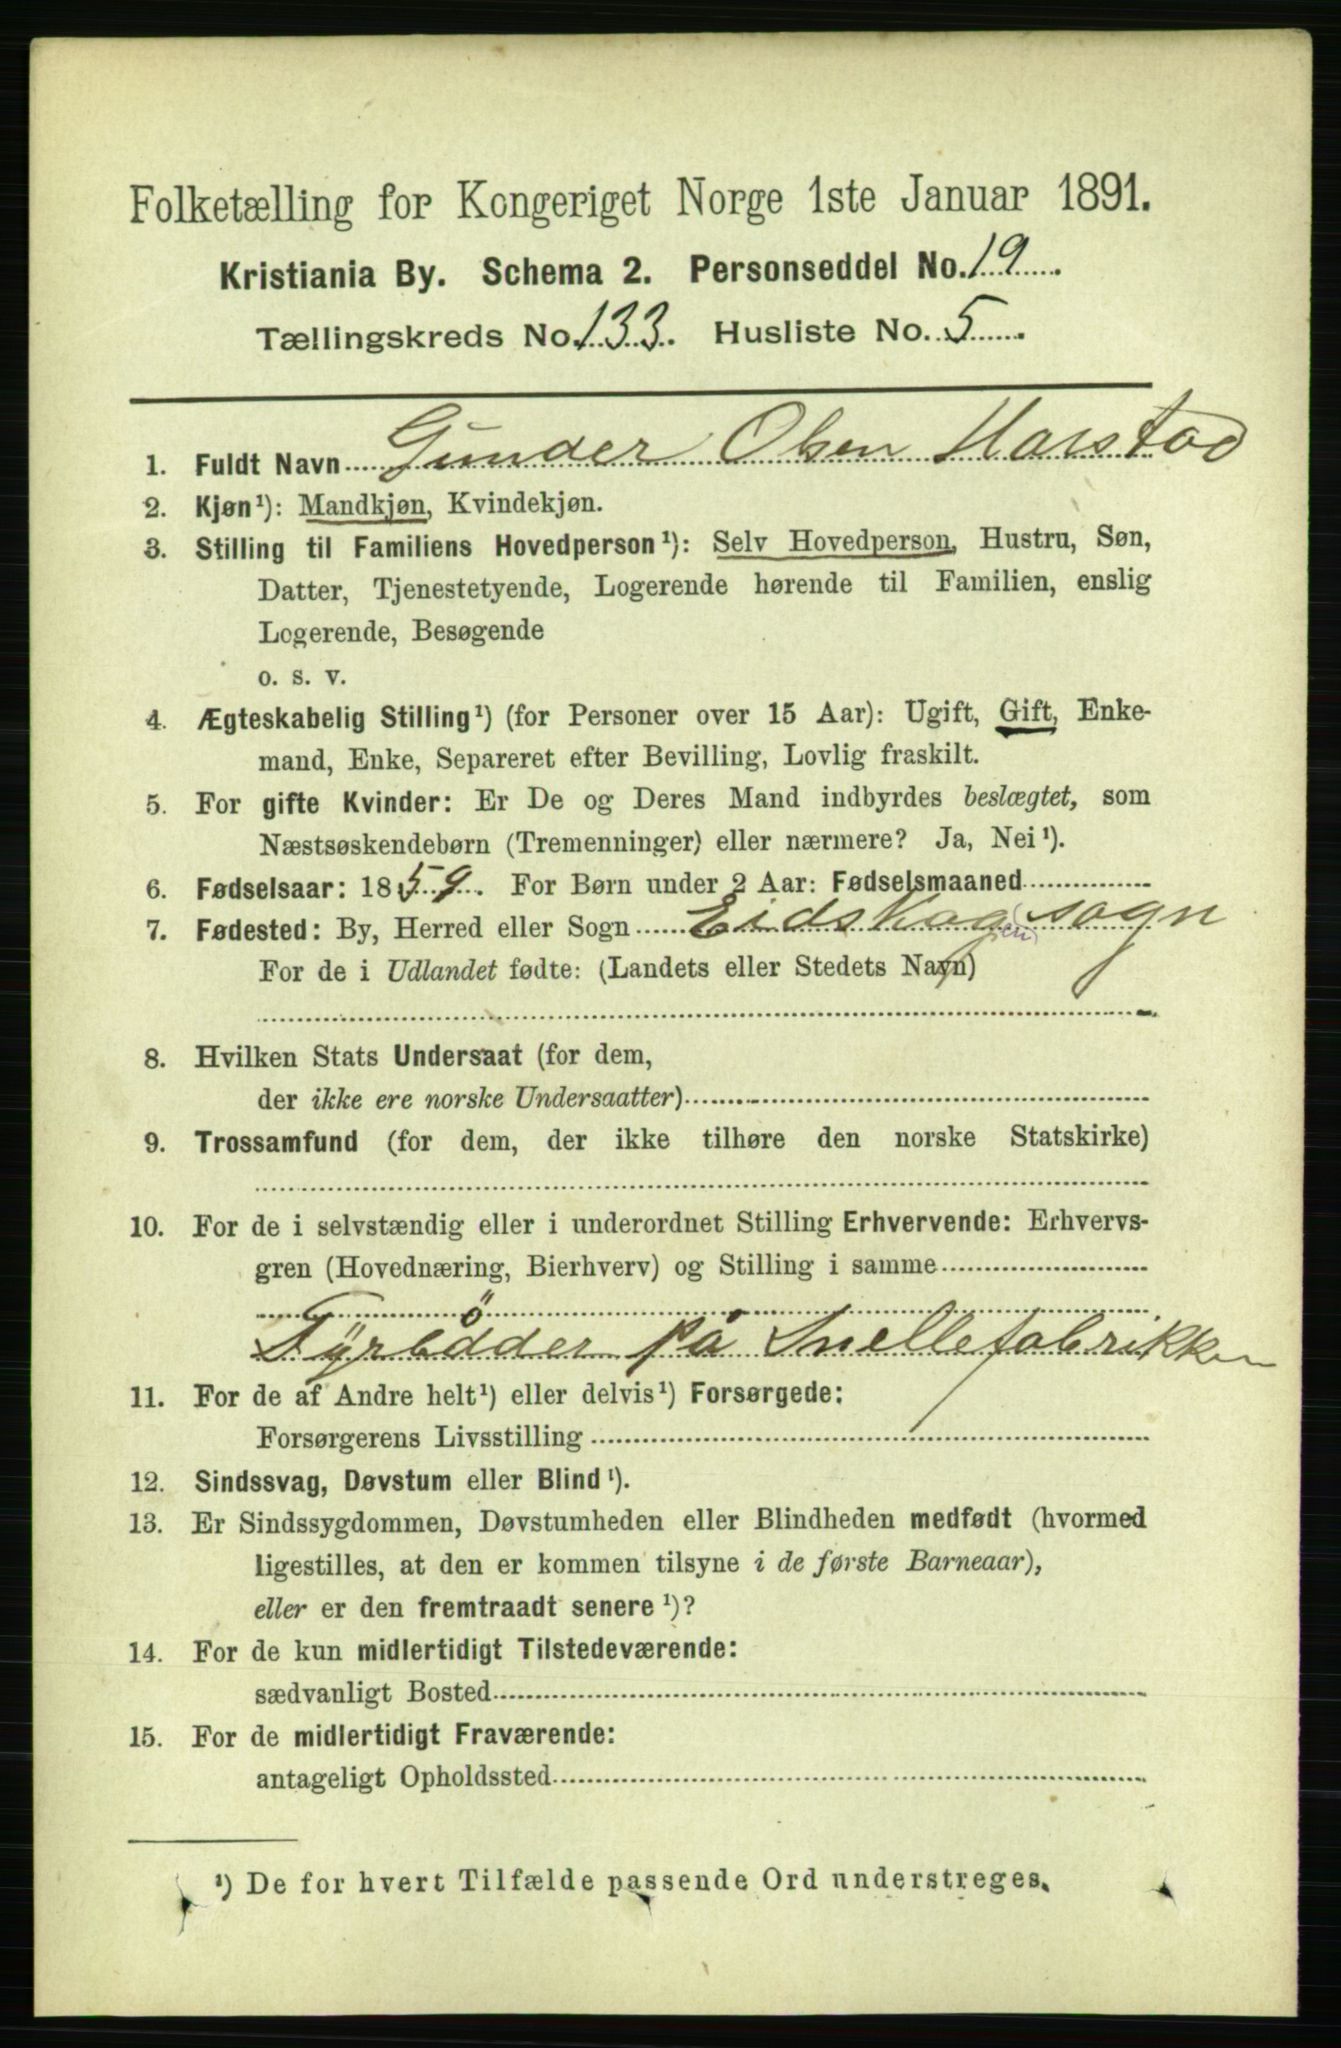 Folketælling for Kongeriget Norge 1ste Januar 1891.
Kristiania By. Schema 2. Personseddel No. 19
Tællingskreds No. 133. Husliste No. 5
1. Fuldt Navn Gunder Olsen Harstad
2. Kjøn¹): Mandkjøn, Kvindekjøn.
3. Stilling til Familiens Hovedperson¹): Selv Hovedperson, Hustru, Søn,
Datter, Tjenestetyende, Logerende hørende til Familien, enslig
Logerende, Besøgende
o. s. v.
4. Ægteskabelig Stilling¹) (for Personer over 15 Aar): Ugift, Gift, Enke-
mand, Enke, Separeret efter Bevilling, Lovlig fraskilt.
5. For gifte Kvinder: Er De og Deres Mand indbyrdes beslægtet, som
Næstsøskendebørn (Tremenninger) eller nærmere? Ja, Nei¹).
6. Fødselsaar: 1859. For Børn under 2 Aar: Fødselsmaaned
7. Fødested: By, Herred eller Sogn Eidskog sogn
For de i Udlandet fødte: (Landets eller Stedets Navn)
8. Hvilken Stats Undersaat (for dem,
der ikke ere norske Undersaatter)
9. Trossamfund (for dem, der ikke tilhøre den norske Statskirke)
10. For de i selvstændig eller i underordnet Stilling Erhvervende: Erhvervs-
gren (Hovednæring, Bierhverv) og Stilling i samme
Fyrböder på Snellefabrikken
11. For de af Andre helt¹) eller delvis¹) Forsørgede:
Forsørgerens Livsstilling
12. Sindssvag, Døvstum eller Blind¹).
13. Er Sindssygdommen, Døvstumheden eller Blindheden medfødt (hvormed
ligestilles, at den er kommen tilsyne i de første Barneaar),
eller er den fremtraadt senere¹)?
14. For de kun midlertidigt Tilstedeværende:
sædvanligt Bosted
15. For de midlertidigt Fraværende:
antageligt Opholdssted
¹) De for hvert Tilfælde passende Ord understreges.